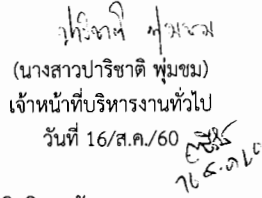 ปาริชาติ พุ่มชม
(นางสาวปาริชาติ พุ่มชม)
เจ้าหน้าที่บริหารงานทั่วไป
วันที่ 16/ส.ค./60
16 ส.ค. 60